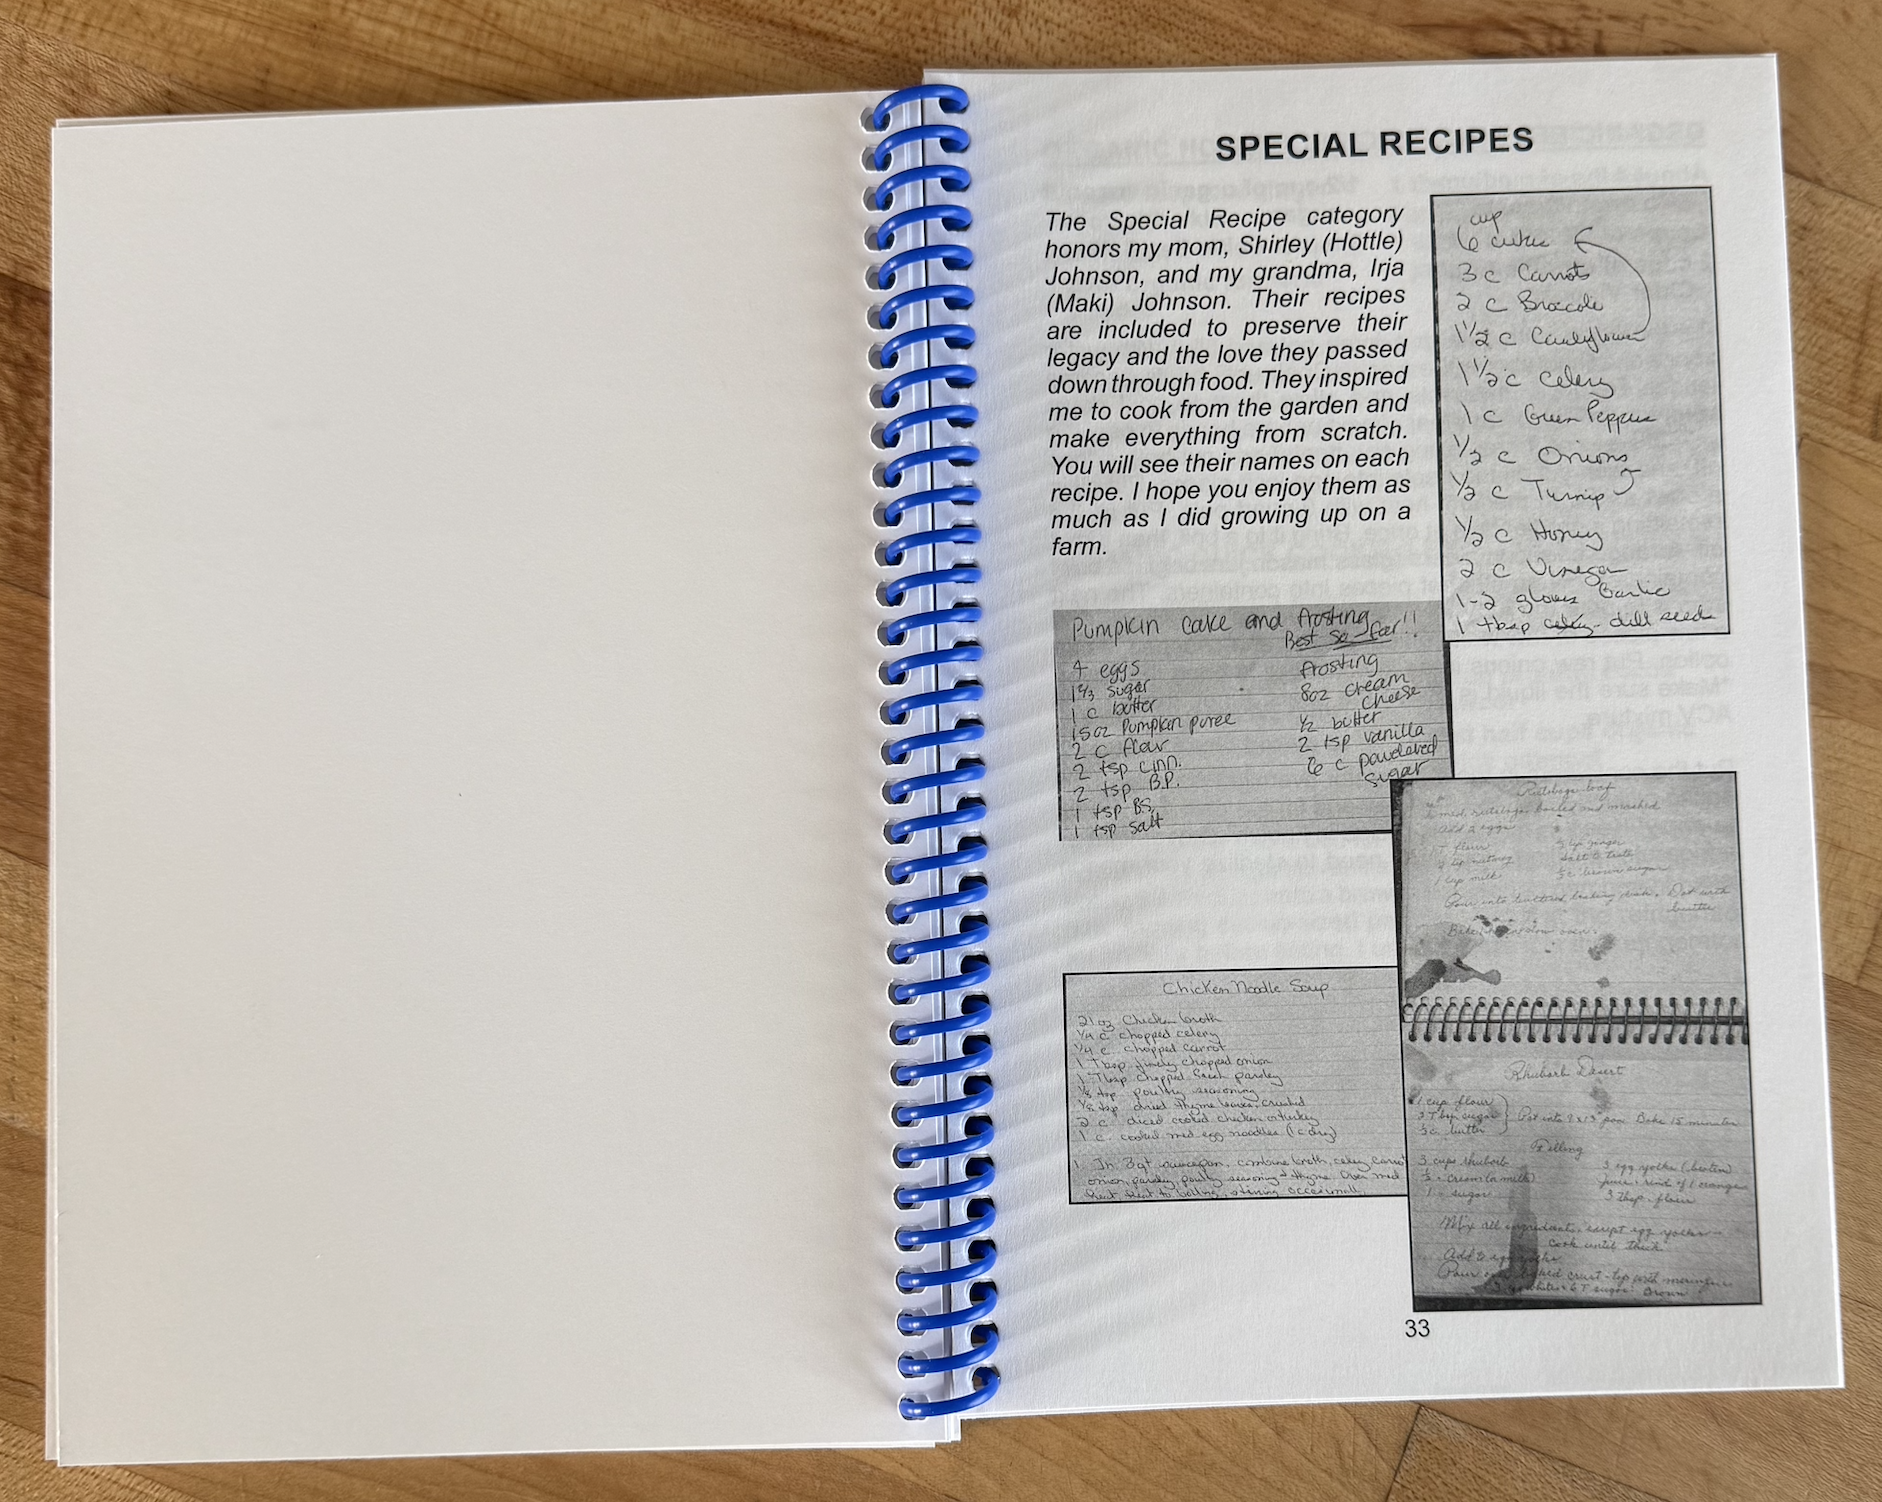 SPECIAL RECIPES
The Special Recipe category
honors my mom, Shirley (Hottle)
Johnson, and my grandma, Irja
(Maki) Johnson. Their recipes
are included to preserve their
legacy and the love they passed
down through food. They inspired
me to cook from the garden and
make everything from scratch.
You will see their names on each
recipe. I hope you enjoy them as
much as I did growing up on a
farm.
cup
6 cukes
3 c Carrots
2 c Broccoli
1 1/2 c Cauliflower
1 1/2 c Celery
1 c Green Peppers
1/2 c Onions
1/2 c Turnip
1/2 c Honey
2 c Vinegar
1-2 gloves Garlic
1 tbsp celery - dill seeds
Pumpkin cake and frosting
Best so far!!
4 eggs
1 2/3 sugar
1 c butter
15 oz Pumpkin puree
2 c flour
2 tsp cinn.
2 tsp B.P.
1 tsp B.S.
1 tsp salt
frosting
8oz cream
cheese
1/2 butter
2 tsp vanilla
6 c powdered
sugar
Rutabaga loaf
med. rutabaga, boiled and mashed
Add 2 eggs
flour
tsp nutmeg
1 cup milk
1/2 tsp ginger
salt to taste
1/2 c. brown sugar
Pour into buttered baking dish. Dot with
butter
Bake in slow oven.
Chicken Noodle Soup
21 oz Chicken broth
1/4 c chopped celery
1/4 c chopped carrot
1 Tbsp finely chopped onion
1 Tbsp chopped fresh parsley
1/8 tsp poultry seasoning
1/8 tsp dried thyme leaves, crushed
2 c. diced cooked chicken or turkey
1 c. cooked med egg noodles (1 c dry)
1. In 3qt saucepan, combine broth, celery, carrot
onion, parsley, poultry seasoning + thyme. Over med
heat, heat to boiling, stirring occasionally
Rhubarb Desert
1 cup flour
3 Tbsp sugar
1/2 c. butter
Pat into 9 x 13" pan Bake 15 minutes
Filling
3 cups rhubarb
1/2 c cream (or milk)
1 c sugar
3 egg yolks (beaten)
juice + rind of 1 orange
3 Tbsp. flour
Mix all ingredients except egg yolks -
Cook until thick.
Add to egg yolks
Pour over baked crust - top with meringue
3 egg whites 6 T sugar. Brown
33